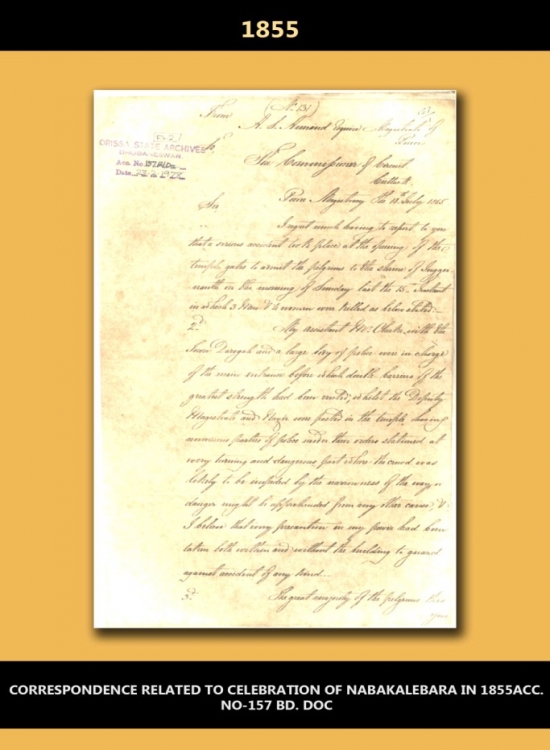 1855
(No 131)
From
A. S. Armand Esquire Magistrate of
Pooree
ORISSA STATE ARCHIVES
BHUBANESWAR
Acc. No.
Date
To,
The Commissioner of Circuit
Cuttack
Pooree Magistracy the 18th July 1855
Sir
I regret much having to report to you
that a serious accident took place at the opening of the
temple gates to admit the pilgrims to the shrine of Jugger-
nauth on the morning of Sunday last the 15th Instant
in which 3 Men & women were killed as below stated.
2nd My assistant Mr. with the
Town Darogah and a large body of police were in charge
of the main entrance before which double barriers of the
greatest strength had been erected, whilst the Deputy
Magistrate and were posted in the temple having
numerous parties of police under their orders stationed at
every turning and dangerous part where the crowd was
likely to be impeded by the narrowness of the way or
danger might be apprehended from any other cause, &
I believe that every precaution in my power had been
taken both within and without the building to guard
against accident of any kind...
3rd The great majority of the pilgrims this
year
CORRESPONDENCE RELATED TO CELEBRATION OF NABAKALEBARA IN 1855ACC.
NO-157 BD. DOC